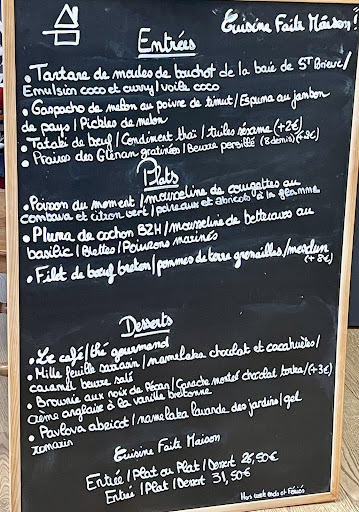 Cuisine Faite Maison !
Entrées
• Tartare de moules de bouchot de la baie de St Brieuc/
Emulsion coco et curry/voile coco
• Gaspacho de melon au poivre de timut/Espuma au jambon
de pays/Pickles de melon
• Tataki de bœuf/Condiment thaï/tuiles sésame (+2€)
• Praires des Glénan gratinées/Beurre persillé (2 demis)(+2€)
Plats
• Poisson du moment/mousseline de courgettes au
combava et citron vert/poireaux et abricots à la flamme
• Pluma de cochon BZH/mousseline de betteraves au
basilic/Blettes/Poivrons marinés
• Filet de bœuf breton/pommes de terre grenailles/
(+8€)
Desserts
• Le café/thé gourmand
• Mille feuille sarrasin/namelaka chocolat et cacahuètes/
caramel beurre salé
• Brownie aux noix de Pécan/Ganache montée chocolat tonka/(+3€)
Crème anglaise à la vanille bretonne
• Pavlova abricot/namelaka lavande des jardins/gel
romarin
Cuisine Faite Maison
Entrée/Plat ou Plat/Dessert 26,50€
Entrée/Plat/Dessert 31,50€
Hors week ends et Fériés